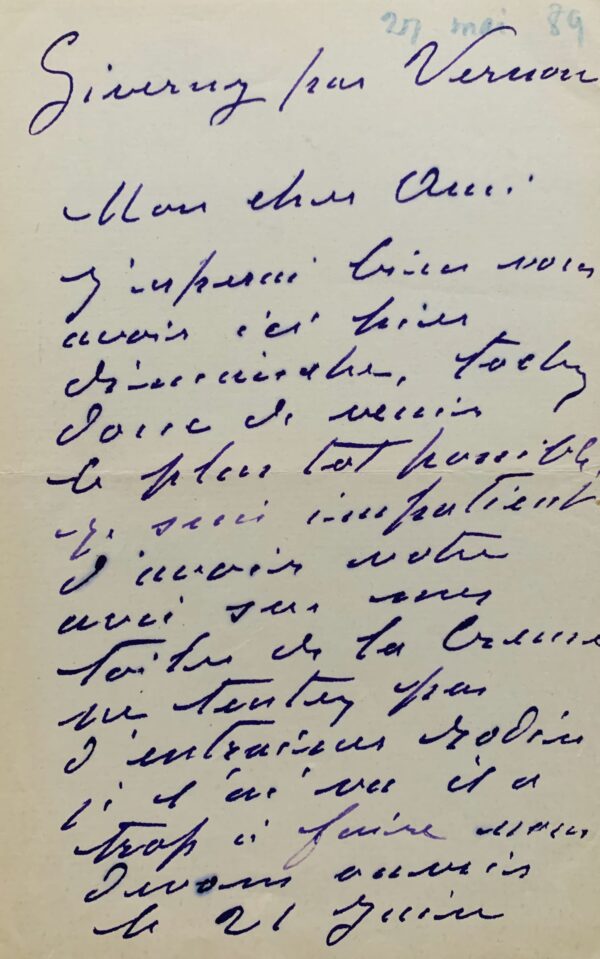 27 mai 89
Giverny par Vernon
Mon cher Ami
J'espérai bien vous
avoir ici hier
dimanche, tachez
donc de venir
le plus tot possible,
je suis impatient
d'avoir votre
avis sur mes
toiles de la Creuse
ne tentez pas
d'entrainer Rodin
je l'ai vu il a
trop à faire nous
devons ouvrir
le 21 Juin